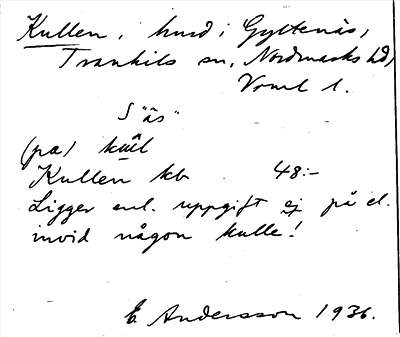 Kullen, hmd i Gyltenäs,
Trankils sn, Nordmarks hd,
Vrml l.
S "äs"
(pa) kul̂l
Kullen kb 48:-
Ligger enl. uppgift ej på el.
invid någon kulle!
E. Andersson 1936.